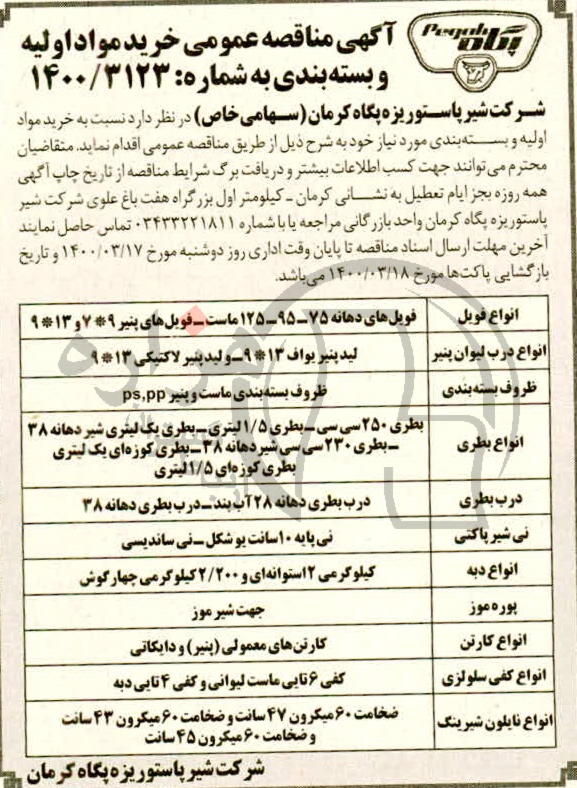 Pegah
پگاه
آگهی مناقصه عمومی خرید مواد اولیه
و بسته‌بندی به شماره: ۱۴۰۰/۳۱۲۳
شرکت شیر پاستوریزه پگاه کرمان (سهامی خاص) در نظر دارد نسبت به خرید مواد
اولیه و بسته‌بندی مورد نیاز خود به شرح ذیل از طریق مناقصه عمومی اقدام نماید. متقاضیان
محترم می‌توانند جهت کسب اطلاعات بیشتر و دریافت برگ شرایط مناقصه از تاریخ چاپ آگهی
همه روزه بجز ایام تعطیل به نشانی کرمان - کیلومتر اول بزرگراه هفت باغ علوی شرکت شیر
پاستوریزه پگاه کرمان واحد بازرگانی مراجعه یا با شماره ۰۳۴۳۳۲۲۱۸۱۱ تماس حاصل نمایند
آخرین مهلت ارسال اسناد مناقصه تا پایان وقت اداری روز دوشنبه مورخ ۱۴۰۰/۰۳/۱۷ و تاریخ
بازگشایی پاکت‌ها مورخ ۱۴۰۰/۰۳/۱۸ می‌باشد.
انواع فویل فویل‌های دهانه ۷۵ــ۹۵ــ۱۲۵ ماست ــ فویل‌های پنیر ۹*۷ و ۱۳*۹
انواع درب لیوان پنیر لید پنیر یواف ۱۳*۹ ــ و لید پنیر لاکتیکی ۱۳*۹
ظروف بسته‌بندی ظروف بسته‌بندی ماست و پنیر ps,pp
انواع بطری بطری ۲۵۰ سی سی ــ بطری ۱/۵ لیتری ــ بطری یک لیتری شیر دهانه ۳۸
ــ بطری ۲۳۰ سی سی شیر دهانه ۳۸ ــ بطری کوزه‌ای یک لیتری
بطری کوزه‌ای ۱/۵ لیتری
درب بطری درب بطری دهانه ۲۸ آب بند ــ درب بطری دهانه ۳۸
نی شیر پاکتی نی پایه ۱۰ سانت یو شکل ــ نی ساندیسی
انواع دبه کیلوگرمی ۲ استوانه‌ای و ۲/۲۰۰ کیلوگرمی چهارگوش
پوره موز جهت شیر موز
انواع کارتن کارتن‌های معمولی (پنیر) و دایکاتی
انواع کفی سلولزی کفی ۶ تایی ماست لیوانی و کفی ۴ تایی دبه
انواع نایلون شیرینگ ضخامت ۶۰ میکرون ۴۷ سانت و ضخامت ۶۰ میکرون ۴۳ سانت
و ضخامت ۶۰ میکرون ۴۵ سانت
شرکت شیر پاستوریزه پگاه کرمان